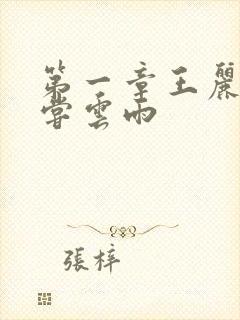 第一章王麗
嘗雲雨
張梓